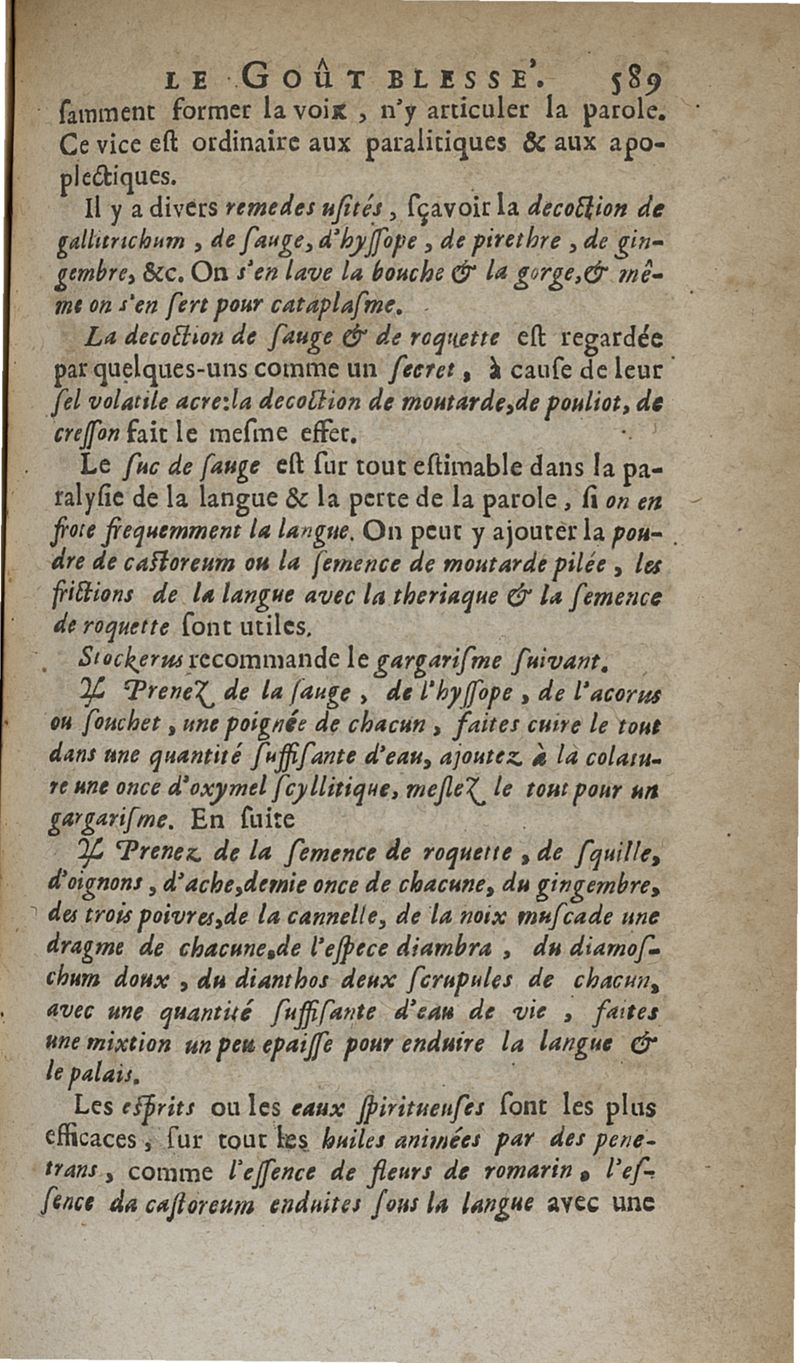 LE GOÛT BLESSE'. 589
ſamment former la voix , n'y articuler la parole.
Ce vice eſt ordinaire aux paralitiques & aux apo-
plectiques.
Il y a divers remedes uſités, ſçavoir la decoction de
gallitrichum , de ſauge, d'hyſſope , de pirethre , de gin-
gembre, &c. On s'en lave la bouche & la gorge,& mê-
me on s'en ſert pour cataplaſme.
La decoction de ſauge & de roquette eſt regardée
par quelques-uns comme un ſecret , à cauſe de leur
ſel volatile acre:la decoction de moutarde,de pouliot, de
creſſon fait le meſme effet.
Le ſuc de ſauge eſt ſur tout eſtimable dans la pa-
ralyſie de la langue & la perte de la parole , ſi on en
frote frequemment la langue. On peut y ajouter la pou-
dre de caſtoreum ou la ſemence de moutarde pilée , les
frictions de la langue avec la theriaque & la ſemence
de roquette ſont utiles.
Stockerus recommande le gargariſme ſuivant.
♃ Prenez de la ſauge , de l'hyſſope , de l'acorus
ou ſouchet , une poignée de chacun , faites cuire le tout
dans une quantité ſuffiſante d'eau, ajoutez à la colatu-
re une once d'oxymel ſcyllitique, meſlez le tout pour un
gargariſme. En ſuite
♃ Prenez de la ſemence de roquette , de ſquille,
d'oignons , d'ache,demie once de chacune, du gingembre,
des trois poivres,de la cannelle, de la noix muſcade une
dragme de chacune,de l'eſpece diambra , du diamoſ-
chum doux , du dianthos deux ſcrupules de chacun,
avec une quantité ſuffiſante d'eau de vie , faites
une mixtion un peu epaiſſe pour enduire la langue &
le palais.
Les eſprits ou les eaux ſpiritueuſes ſont les plus
efficaces , ſur tout les huiles animées par des pene-
trans , comme l'eſſence de fleurs de romarin , l'eſ-
ſence da caſtoreum enduites ſous la langue avec une